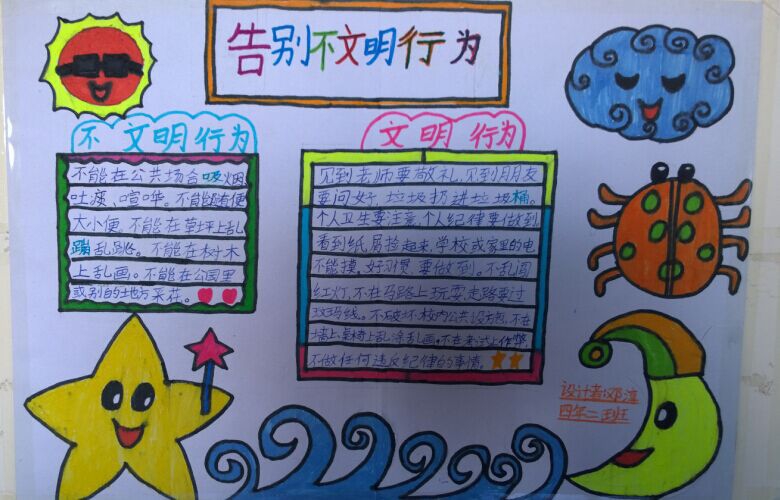 告别不文明行为
不文明行为
不能在公共场合吸烟
吐痰、喧哗。不能随便
大小便。不能在草坪上乱
蹦乱跳。不能在树木
上乱画。不能在公园里
或别的地方采花。
文明行为
见到老师要敬礼,见到朋友
要问好,垃圾扔进垃圾桶。
个人卫生要注意,个人纪律要做到,
看到纸屑捡起来,学校或家里的电
不能摸。好习惯,要做到。不乱闯
红灯,不在马路上玩耍,走路要过
斑马线。不破坏校内公共设施,不在
墙上、桌椅上乱涂乱画,不在考试上作弊,
不做任何违反纪律的事情。
设计者:邓淳
四年二班